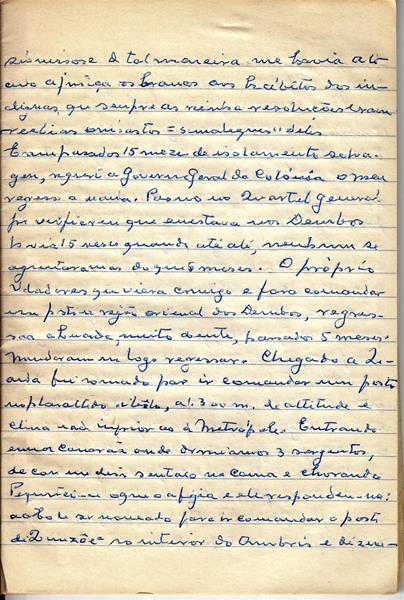 e de tal maneira me havia
aos hábitos dos in-
dignas, que sempre as minhas resoluções eram
= "simaleques" deles
passados 15 meses de isolamento selva-
gem, ao Governo Geral da Colónia o meu
regresso a Luanda. No Quartel General
verificou que eu estava nos Dembos
havia 15 meses quando até ali, nenhum se
aguentara mais do que 5 meses. O próprio
que viera comigo e fora comandar
um posto na região oriental dos Dembos, regres-
sou a Luanda, muito doente, passados 5 meses.
Mandaram-me logo regressar. Chegado a Lu-
anda fui nomeado para ir comandar um posto
no planalto do a 1.300 m. de altitude e
clima não inferior ao da Metrópole. Entrando
numa camarata onde dormiamos 3 sargentos,
deu com um deles sentado na cama e chorando
Perguntei-lhe o que o afligia e ele respondeu-me:
acabo de ser nomeado para ir comandar o posto
de no interior do Ambriz e dizem-